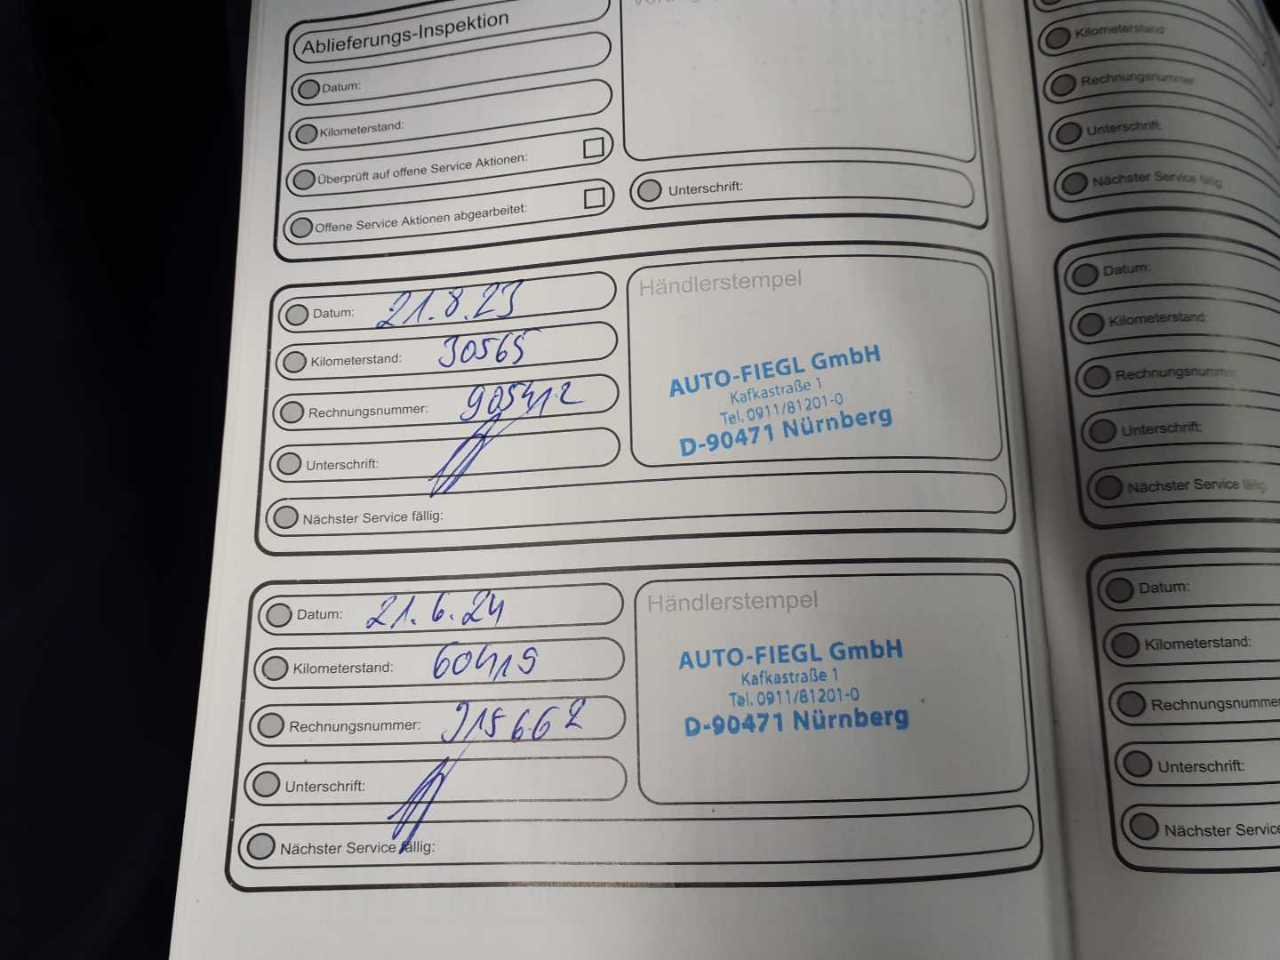 Ablieferungs-Inspektion
Datum:
Kilometerstand:
Überprüft auf offene Service Aktionen:
Offene Service Aktionen abgearbeitet:
Unterschrift:
Datum: 21.8.23
Kilometerstand: 30565
Rechnungsnummer: 905412
Unterschrift:
Nächster Service fällig:
Händlerstempel
AUTO-FIEGL GmbH
Kafkastraße 1
Tel. 0911/81201-0
D-90471 Nürnberg
Datum: 21.6.24
Kilometerstand: 60419
Rechnungsnummer: 915662
Unterschrift:
Nächster Service fällig:
Händlerstempel
AUTO-FIEGL GmbH
Kafkastraße 1
Tel. 0911/81201-0
D-90471 Nürnberg
Kilometerstand
Rechnungsnummer
Unterschrift:
Nächster Service fällig
Datum:
Kilometerstand:
Rechnungsnummer
Unterschrift:
Nächster Service fällig
Datum:
Kilometerstand:
Rechnungsnumme
Unterschrift:
Nächster Service